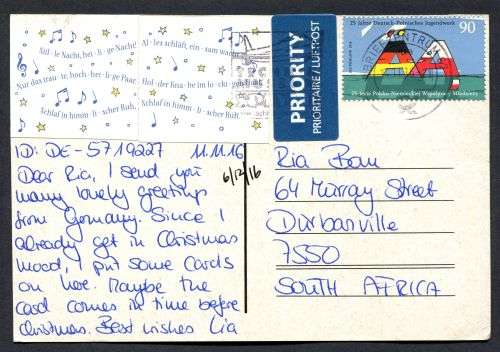 Stil - le Nacht, hei - li - ge Nacht!
Al - les schläft, ein - sam wacht
Nur das trau - te, hoch - hei - li - ge Paar.
Hol - der Kna - be im lo - cki - gen
Schlaf in himm - li - scher Ruh,
Schlaf in himm - li - scher Ruh.
PRIORITY
PRIORITAIRE/LUFTPOST
25 Jahre Deutsch-Polnisches Jugendwerk
90
25-lecie Polsko-Niemieckiej Współpracy Młodzieży
BRIEFZENTRUM
ID: DE-5719227 11.11.16
Dear Ria, I send you
many lovely greetings
from Germany. Since I
already get in Christmas
mood, I put some Cards
on here. Maybe the
card comes in time before
Christmas. Best wishes Lia
6/12/16
Ria
64 Murray Street
Durbanville
7550
SOUTH AFRICA